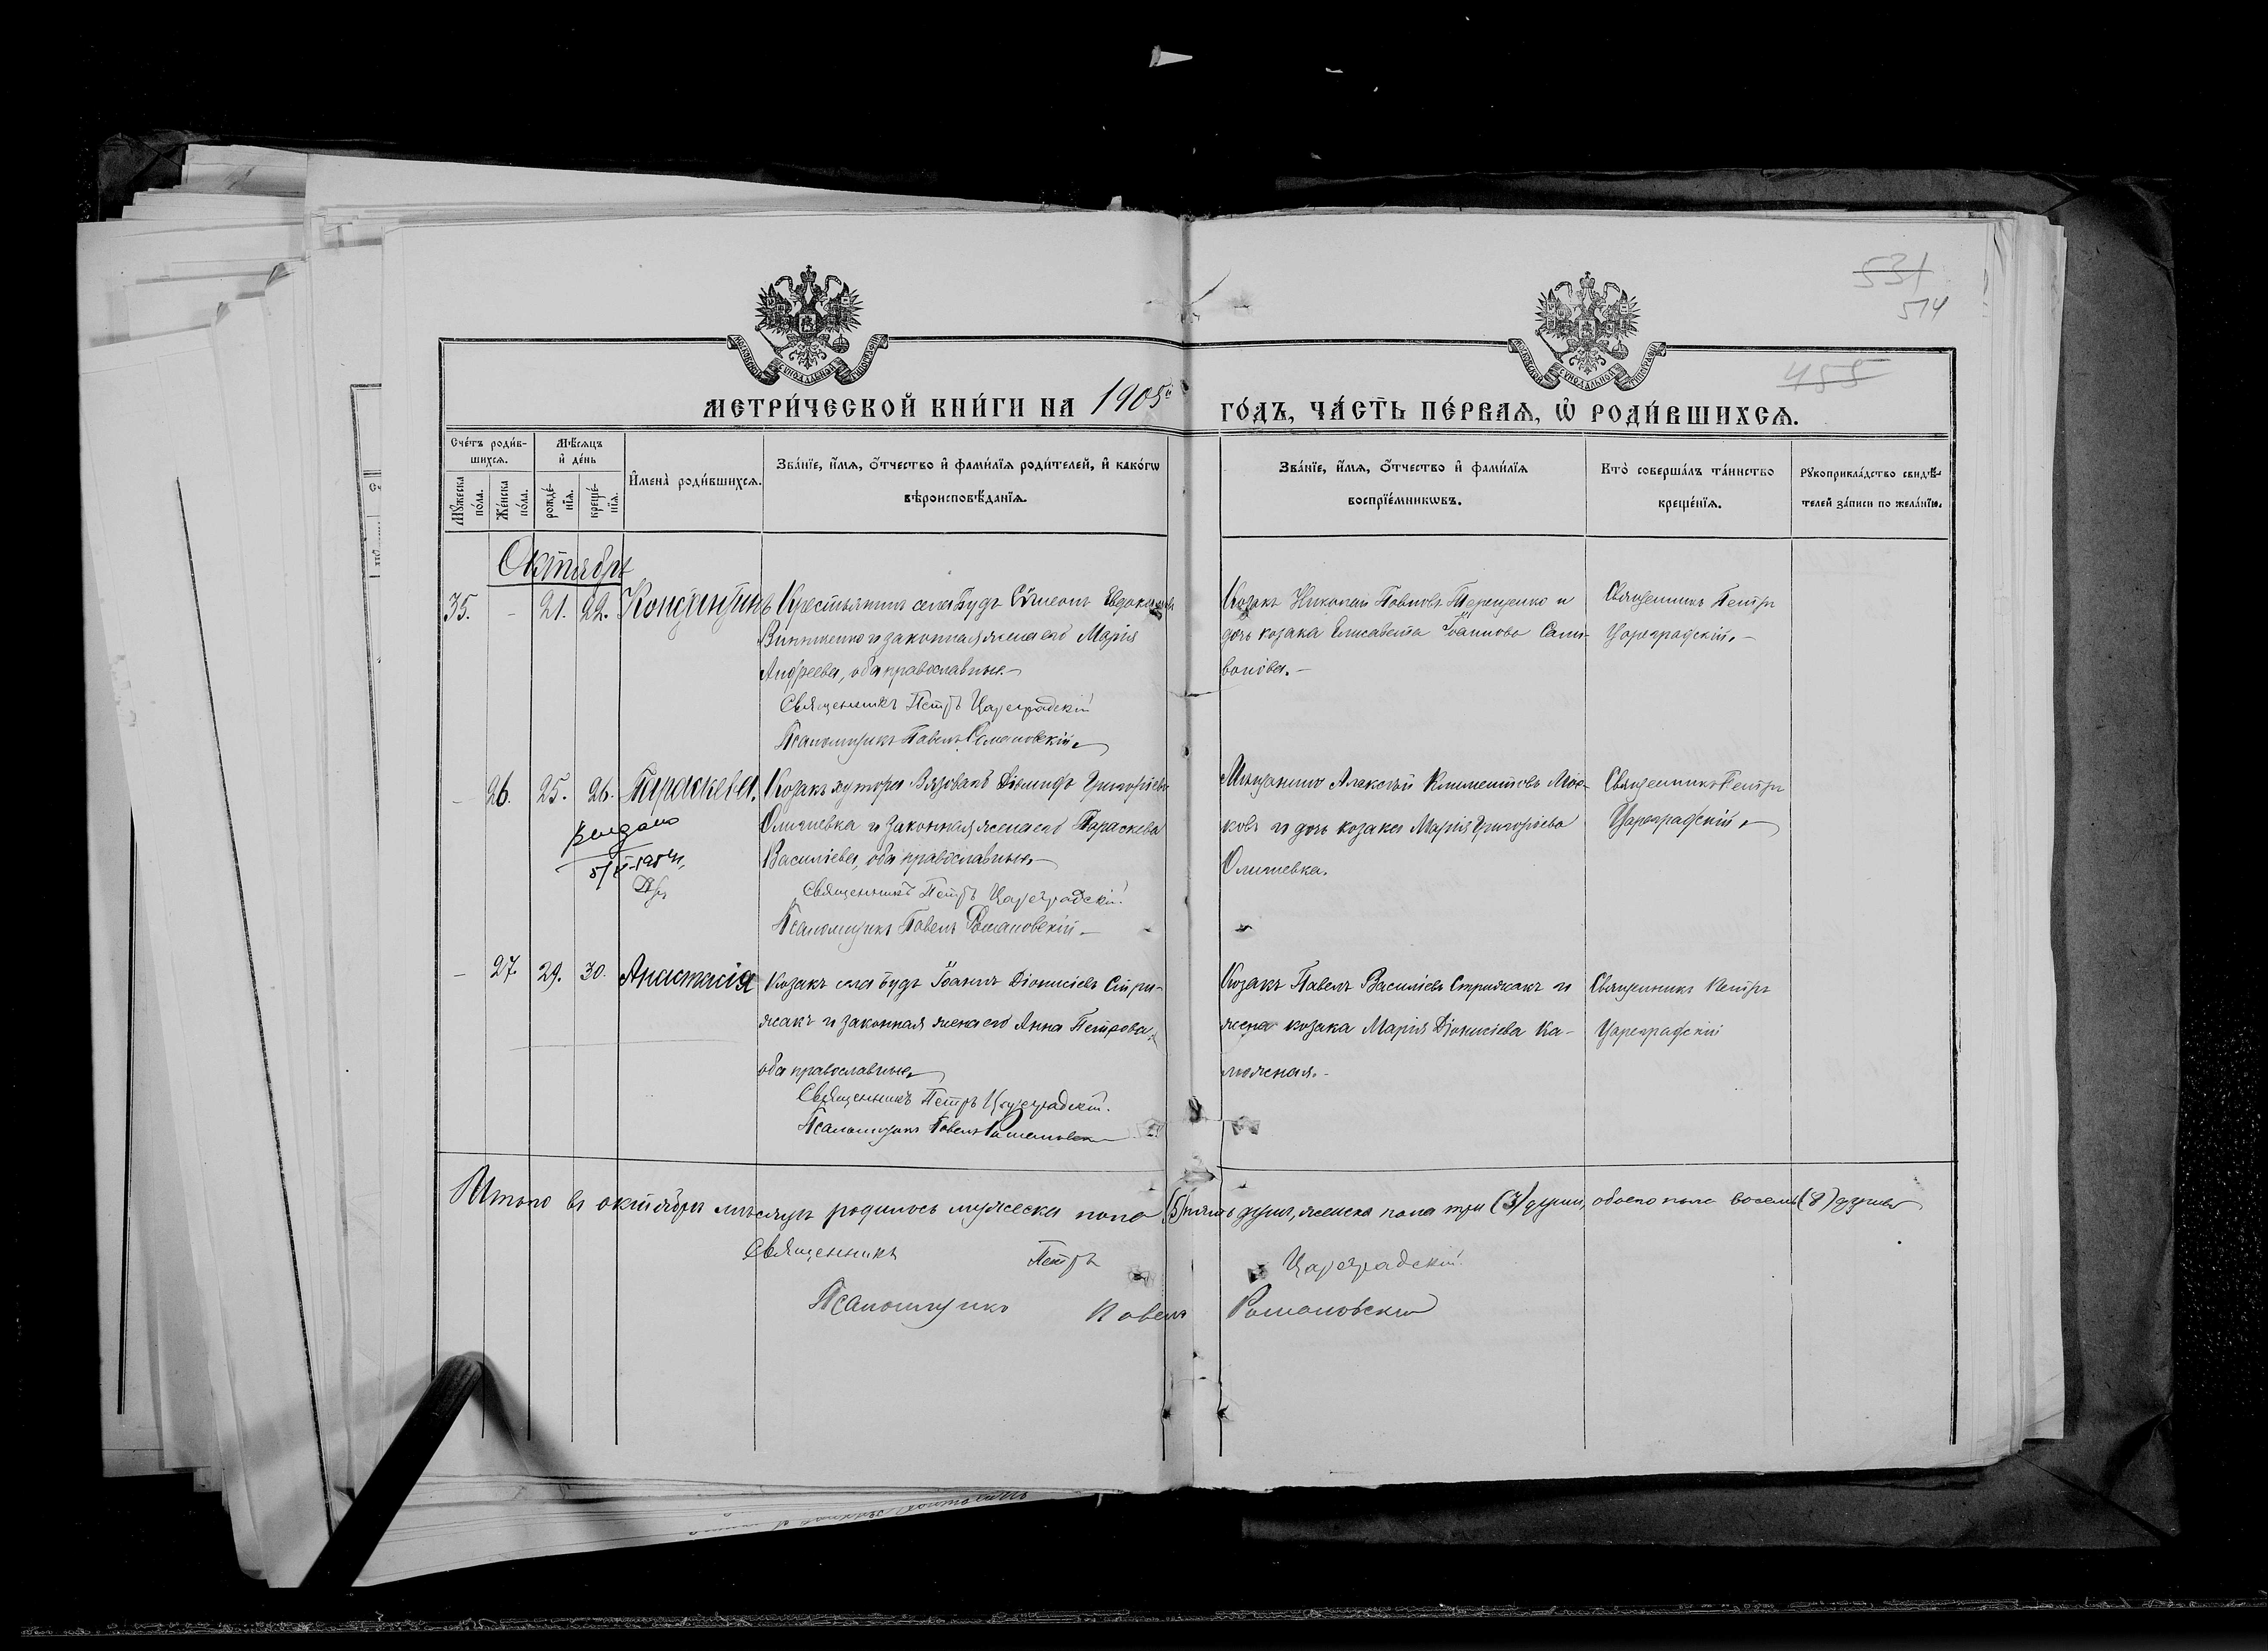 531
514
455
МЕТРИ́ЧЕСКОЙ КНИ́ГИ НА 1905й ГО́ДЪ, ЧА́СТЬ ПЕ́РВАЯ, Ѡ РОДИ́ВШИХСЯ.
Сче́тъ роди́в-
шихся.
Мꙋ́жеска по́ла.
Же́нска по́ла.
Мѣ́сяцъ
и҆ де́нь
рожде́-
нїя.
креще́-
нїя.
И҆мена̀ роди́вшихся.
Зва́нїе, и҆́мя, о҆́тчество и҆ фами́лїя роди́телей, и҆ како́гѡ
вѣроисповѣ́данїя.
Зва́нїе, и҆́мя, о҆́тчество и҆ фами́лїя
воспрїе́мникѡвъ.
Кто̀ соверша́лъ та́инство
креще́нїя.
Рꙋкоприкла́дство свидѣ́-
телей за́писи по жела́нїю.
Октябрь
35. - 21. 22. Константинъ Крестьянинъ села Будъ Сѵмеонъ Евдокимовъ
Винниченко и законная жена его Марія
Андреева, оба православные.
Священникъ Петръ Цареградскій
Псаломщикъ Павелъ Романовскій
Козакъ Николай Павловъ Терещенко и
дочь козака Елисавета Іоаннова Сали-
вонова.
Священникъ Петръ
Цареградскій.
- 26. 25. 26. Параскева. Козакъ хутора Вязовакъ Діомидъ Григоріевъ
Олишевка и законная жена его Параскева
Василіева, оба православные
Священникъ Петръ Цареградскій
Псаломщикъ Павелъ Романовскій
видано
Мѣщанинъ Алексѣй Климентовъ Мос-
ковъ и дочь козака Марія Григоріева
Олишевка.
Священникъ Петръ
Цареградскій
- 27. 29. 30. Анастасія Козакъ села Будъ Іоаннъ Діонисіевъ Стри-
жакъ и законная жена его Анна Петрова,
оба православные
Священникъ Петръ Цареградскій.
Псаломщикъ Павелъ Романовскій
Козакъ Павелъ Василіевъ Стрижакъ и
жена козака Марія Діонисіева Ка-
люжная.
Священникъ Петръ
Цареградскій
Итого въ октябрѣ мѣсяцѣ родилось мужеска пола (5) пять душъ, женска пола три (3) души, обоего пола восемь (8) душъ
Священникъ Петръ Цареградскій
Псаломщикъ Павелъ Романовскій